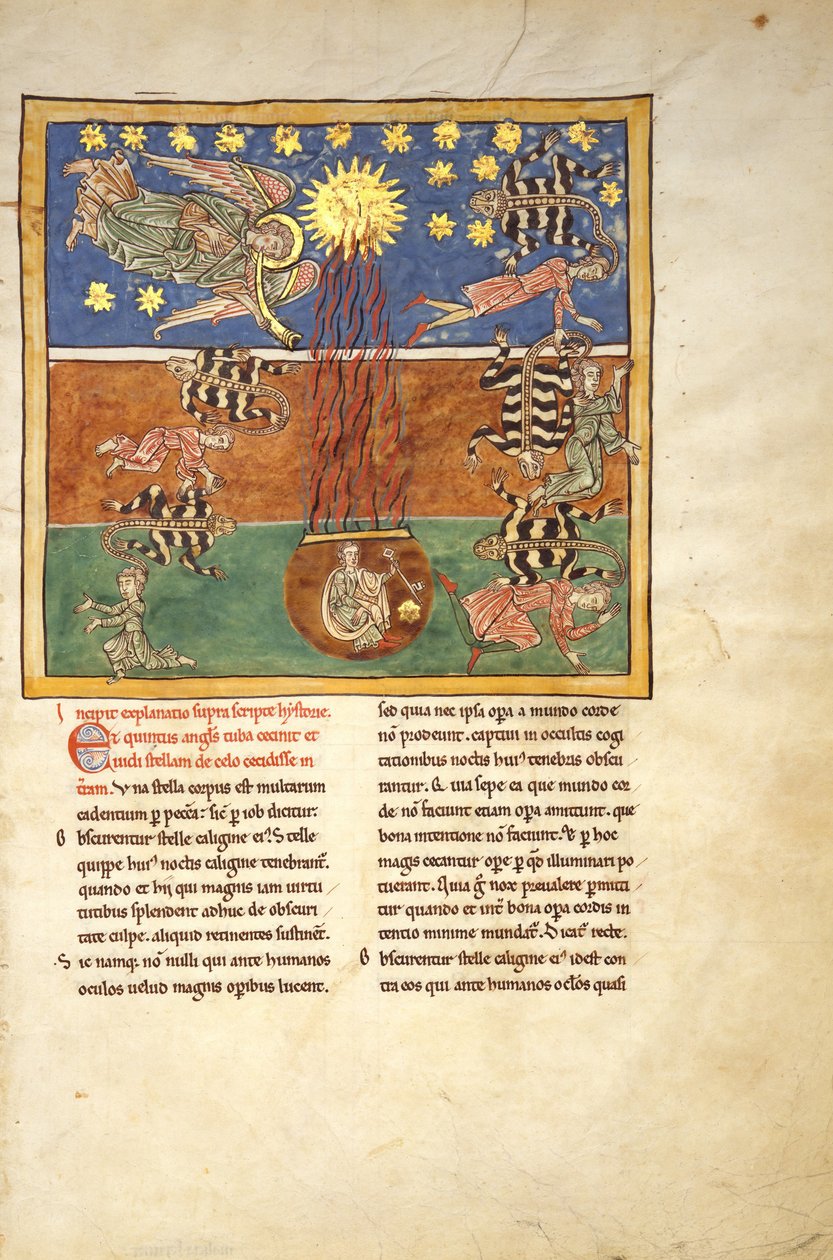 Incipit explanatio supra scripte hystorie.
Et quintus angłs tuba cecinit et
uidi stellam de celo cecidisse in
t̄ram. Vna stella corpus est multarum
cadentium ꝑ pecc̄a: sic̄ ꝑ iob dicitur.
Obscurentur stelle caligine ei᷒. Stelle
quippe hui᷒ noctis caligine tenebrant̄.
quando et hij qui magnis iam uirtu
tutibus splendent adhuc de obscuri
tate culpe. aliquid retinentes sustinēt.
Sic namq; nō nulli qui ante humanos
oculos uelud magnis oꝑibus lucent.
sed quia nec ipsa oꝑa a mundo corde
nō prodeunt. captiui in occultis cogi
tationibus noctis hui᷒ tenebris obscu
rantur. Et uia sepe ea que mundo cor
de nō faciunt etiam oꝑa amittunt. que
bona intentione nō faciunt. Et ꝑ hoc
magis cecantur oꝑe ꝑ qd̄ illuminari po
tuerant. Quia ḡ nox preualere ꝑmitti
tur quando et int̄ bona oꝑa cordis in
tentio minime mundat̄. Dicat̄ recte.
Obscurentur stelle caligine ei᷒ idest con
tra eos qui ante humanos oclos quasi